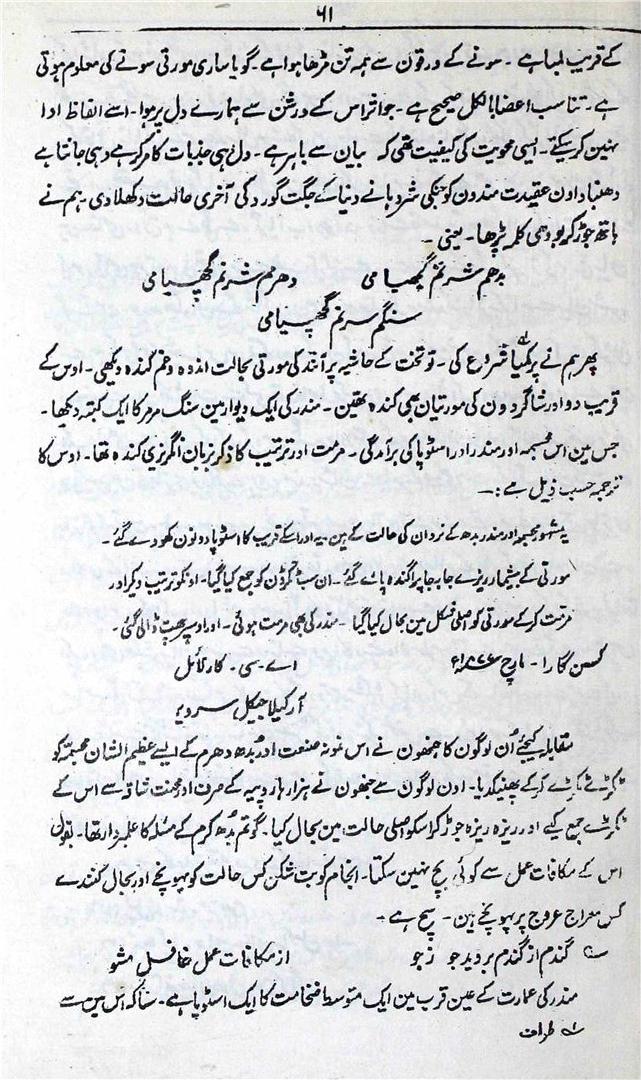 ۶۱
کے قریب لمبا ہے ۔ سونے کے ورقون سے ہمہ تن مڑھا ہوا ہے ۔ گویا ساری مورتی سونے کی معلوم ہوتی
ہے ۔ تناسب اعضا بالکل صحیح ہے ۔ جو اثر اس کے درشن سے ہمارے دل پر ہوا ۔ اسے الفاظ ادا
نہین کر سکتے ۔ ایسی محویت کی کیفیت تھی کہ بیان سے باہر ہے ۔ دل ہی جذبات کا مرکز ہے وہی جانتا ہے
دھنباد اون عقیدت مندون کو جنکی شردہا نے دنیا کے جگت گورو کی آخری حالت دکھلا دی ۔ ہم نے
ہاتھ جوڑ کر بودہی کلمہ پڑھا ۔ یعنی ۔
بدھم شرنم گچھیامی دھرمم شرنم گھچیامی
سنگم سرنم گھچیامی
پھر ہم نے پرکیا شروع کی ۔ تو تخت کے حاشیہ پر آنند کی مورتی بحالت اندوہ و غم کندہ دیکھی ۔ اوس کے
قریب دو اور شاگردون کی مورتیان بھی کندہ تھین ۔ مندر کی ایک دیوار مین سنگ مرمر کا ایک کتبہ دیکھا ۔
جس مین اس مجسمہ اور مندر اور اسٹوپا کی برآمدگی ۔ مرمت اور ترتیب کا ذکر بزبان انگریزی کندہ تھا ۔ اوس کا
ترجمہ حسب ذیل ہے :۔
یہ مشہور مجسمہ اور مندر بدھ کے نروان کی حالت کے ہین ۔ یہ اور اسکے قریب کا اسٹوپا دونون کھودے گئے ۔
مورتی کے بیشمار ریزے جا بجا پراگندہ پائے گئے ۔ ان سب ٹکڑون کو جمع کیا گیا ۔ اونکو ترتیب دیکر اور
مرمت کر کے مورتی کو اصلی شکل مین بحال کیا گیا ۔ مندر کی بھی مرمت ہوئی ۔ اور اوسپر چھت ڈالی گئی ۔
کسن گارا ۔ مارچ ۱۸۷۷ء اے ۔ سی ۔ کارلائل
آرکیلاجیکل سرویر
مقابلہ کیجئے اُن لوگون کا جنھون نے اس نمونہ صنعت اور بُدھ دھرم کے ایسے عظیم الشان مجسمہ کو
ٹکڑے ٹکڑے کر کے پھینکدیا ۔ اون لوگون سے جنھون نے ہزارہا روپیہ کے صرف اور محنت شاقہ سے اس کے
ٹکڑے جمع کیے اور ریزہ ریزہ جوڑ کر اسکو اصلی حالت مین بحال کیا ۔ گوتم بدھ کرم کے مسئلہ کا علمبردار تھا ۔ بقول
اس کے مکافات عمل سے کوئی بچ نہین سکتا ۔ انجام کو بت شکن کس حالت کو پہونچے اور بحال کنندے
کس معراج عروج پر پہونچے ہین ۔ سچ ہے ۔
گندم از گندم بروید جو ز جو از مکافات عمل غافل مشو
مندر کی عمارت کے عین قرب مین ایک متوسط ضخامت کا ایک اسٹوپا ہے ۔ سنا کہ اس مین سے
طواف